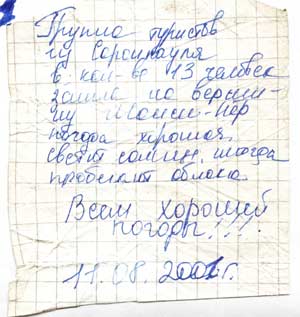 Группа туристов
из Саранпауля
в кол-ве 13 человек
зашла на верши-
ну Манси-Нёр
погода хорошая
светит солнце, иногда
пробегают облака.
Всем хорошей
погоды!!!
11.08.2001г.